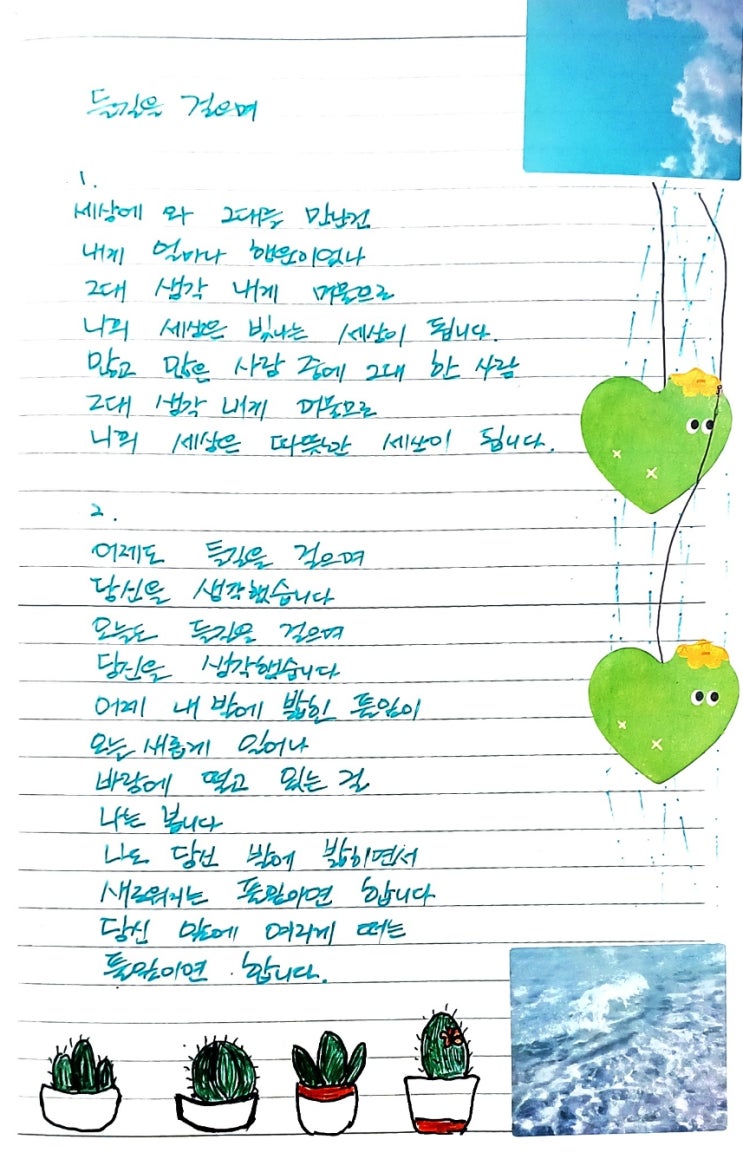 들길을 걸으며
1.
세상에 와 그대를 만난건
내게 얼마나 행운이었나
그대 생각 내게 머물므로
나의 세상은 빛나는 세상이 됩니다.
많고 많은 사람 중에 그대 한 사람
그대 생각 내게 머물므로
나의 세상은 따뜻한 세상이 됩니다.
2.
어제도 들길을 걸으며
당신을 생각했습니다
오늘도 들길을 걸으며
당신을 생각했습니다
어제 내 발에 밟힌 풀잎이
오늘 새롭게 일어나
바람에 떨고 있는 걸
나는 봅니다
나도 당신 발에 밟히면서
새로워지는 풀잎이면 합니다
당신 앞에 여리게 떠는
풀잎이면 합니다.